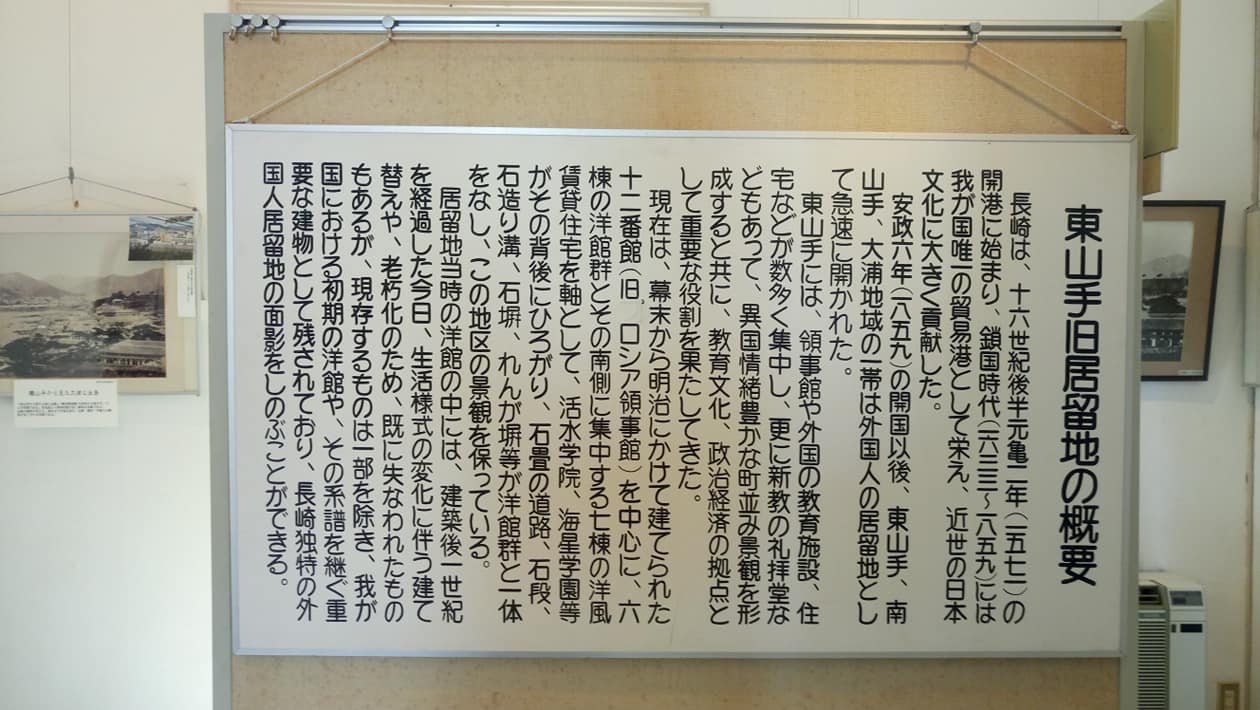 東山手旧居留地の概要
長崎は、十六世紀後半元亀二年（一五七一）の
開港に始まり、鎖国時代（一六三三〜一八五九）には
我が国唯一の貿易港として栄え、近世の日本
文化に大きく貢献した。
安政六年（一八五九）の開国以後、東山手、南
山手、大浦地域の一帯は外国人の居留地とし
て急速に開かれた。
東山手には、領事館や外国の教育施設、住
宅などが数多く集中し、更に新教の礼拝堂な
どもあって、異国情緒豊かな町並み景観を形
成すると共に、教育文化、政治経済の拠点と
して重要な役割を果たしてきた。
現在は、幕末から明治にかけて建てられた
十二番館（旧、ロシア領事館）を中心に、六
棟の洋館群とその南側に集中する七棟の洋風
賃貸住宅を軸として、活水学院、海星学園等
がその背後にひろがり、石畳の道路、石段、
石造り溝、石塀、れんが塀等が洋館群と一体
をなし、この地区の景観を保っている。
居留地当時の洋館の中には、建築後一世紀
を経過した今日、生活様式の変化に伴う建て
替えや、老朽化のため、既に失なわれたもの
もあるが、現存するものは一部を除き、我が
国における初期の洋館や、その系譜を継ぐ重
要な建物として残されており、長崎独特の外
国人居留地の面影をしのぶことができる。